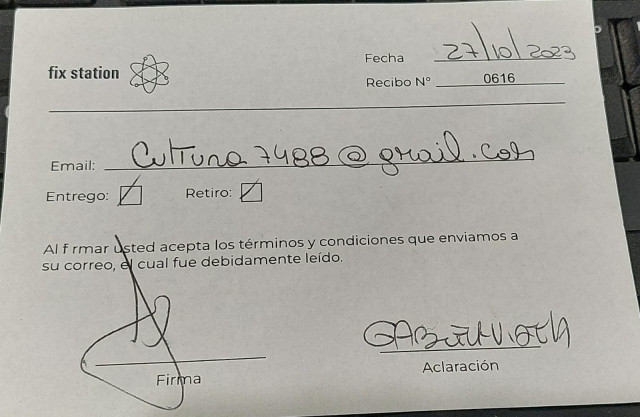 fix station
Fecha 27/10/2023
Recibo Nº 0616
Email: Cultura7488@gmail.com
Entrego: Retiro:
Al f rmar usted acepta los términos y condiciones que enviamos a
su correo, el cual fue debidamente leído.
Firma
Aclaración